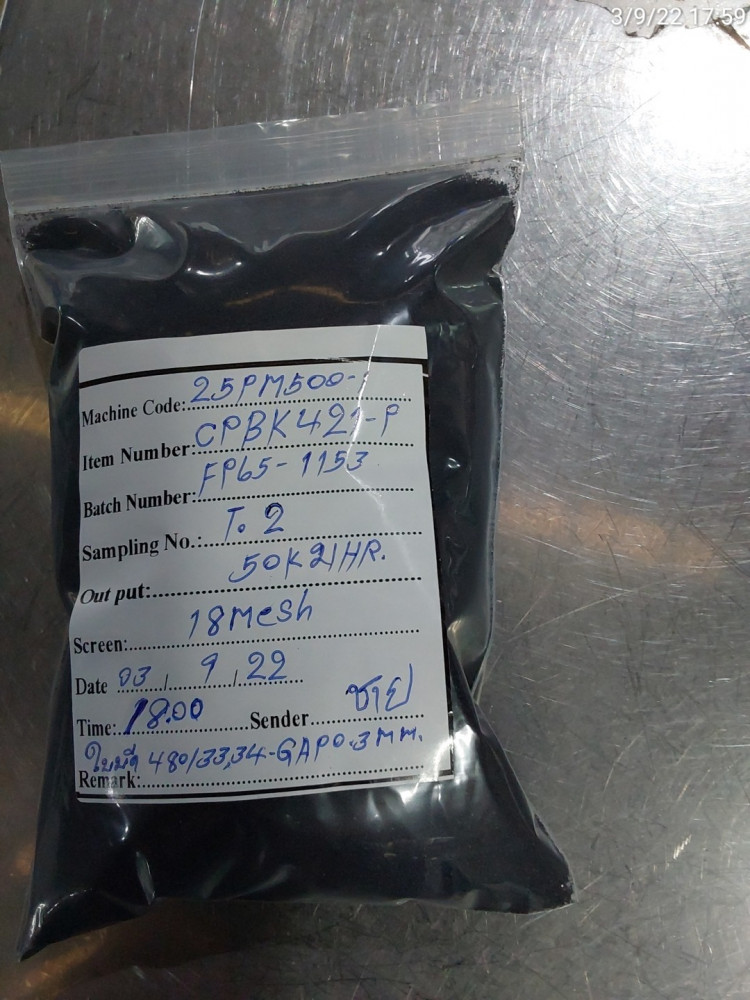 3/9/22 17:59
Machine Code: 25PM500-
Item Number: CPBK421-P
Batch Number: FP65-1153
Sampling No.: T. 2
Out put: 50K21HR.
Screen: 18Mesh
Date 03 / 9 / 22
Time: 18.00 Sender ชาย
ใบมีด 480/33,34-GAP0.3mm.
Remark: